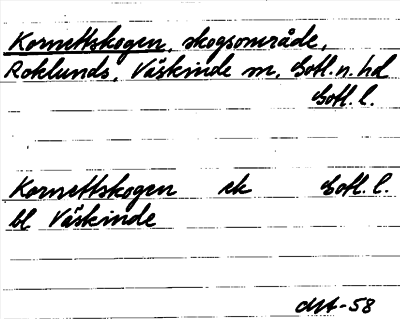 Kornettskogen, skogsområde,
Roklunds, Väskinde sn, Gotl. n. hd
Gotl. l.
Kornettskogen ek Gotl. l.
bl Väskinde
-58